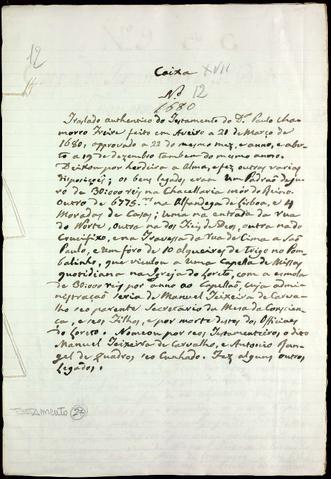 12
Caixa XVII
Nº 12
1680
Traslado authentico do Testamento do Dr. Paulo Cha
morro Freire feito em Aveiro a 20 de Março de
1680, approvado a 22 do mesmo mez, e anno, e aber
to a 19 de Dezembro tambem do mesmo anno.
Deixou por herdeira a Alma, e fez outras varias
disposições; os bens legados, eram um Padrão de ju
ro de 130000 reis, na Chacellaria mór do Reino.
Outro de 6775 na Alfandega de Lisboa, e 4
Moradas de Casas; uma na entrada da rua
do Norte, outra na dos outra na do
Crucifixo, e na Travessa da rua de Cima a São
Paulo, e um foro de 10 alqueires de Trigo no Pom
balinho, que vinculou a uma Capella de Missa
quotidiana na Igreja do Loreto, com a esmola
de 60:000 reis por anno ao Capellão, cuja admi
nistração seria de Manuel Teixeira de Carva
lho seo parente Secretario da Meza da Conscien
cia, e seos Filhos, e por morte destes dos Officiaes
do Loreto. Nomeou por seos Testamenteiros o dito
Manuel Teixeira de Carvalho, e Antonio Ran
gel de Quadros seo Cunhado. Fez alguns outros
Legados.
Testamento 27